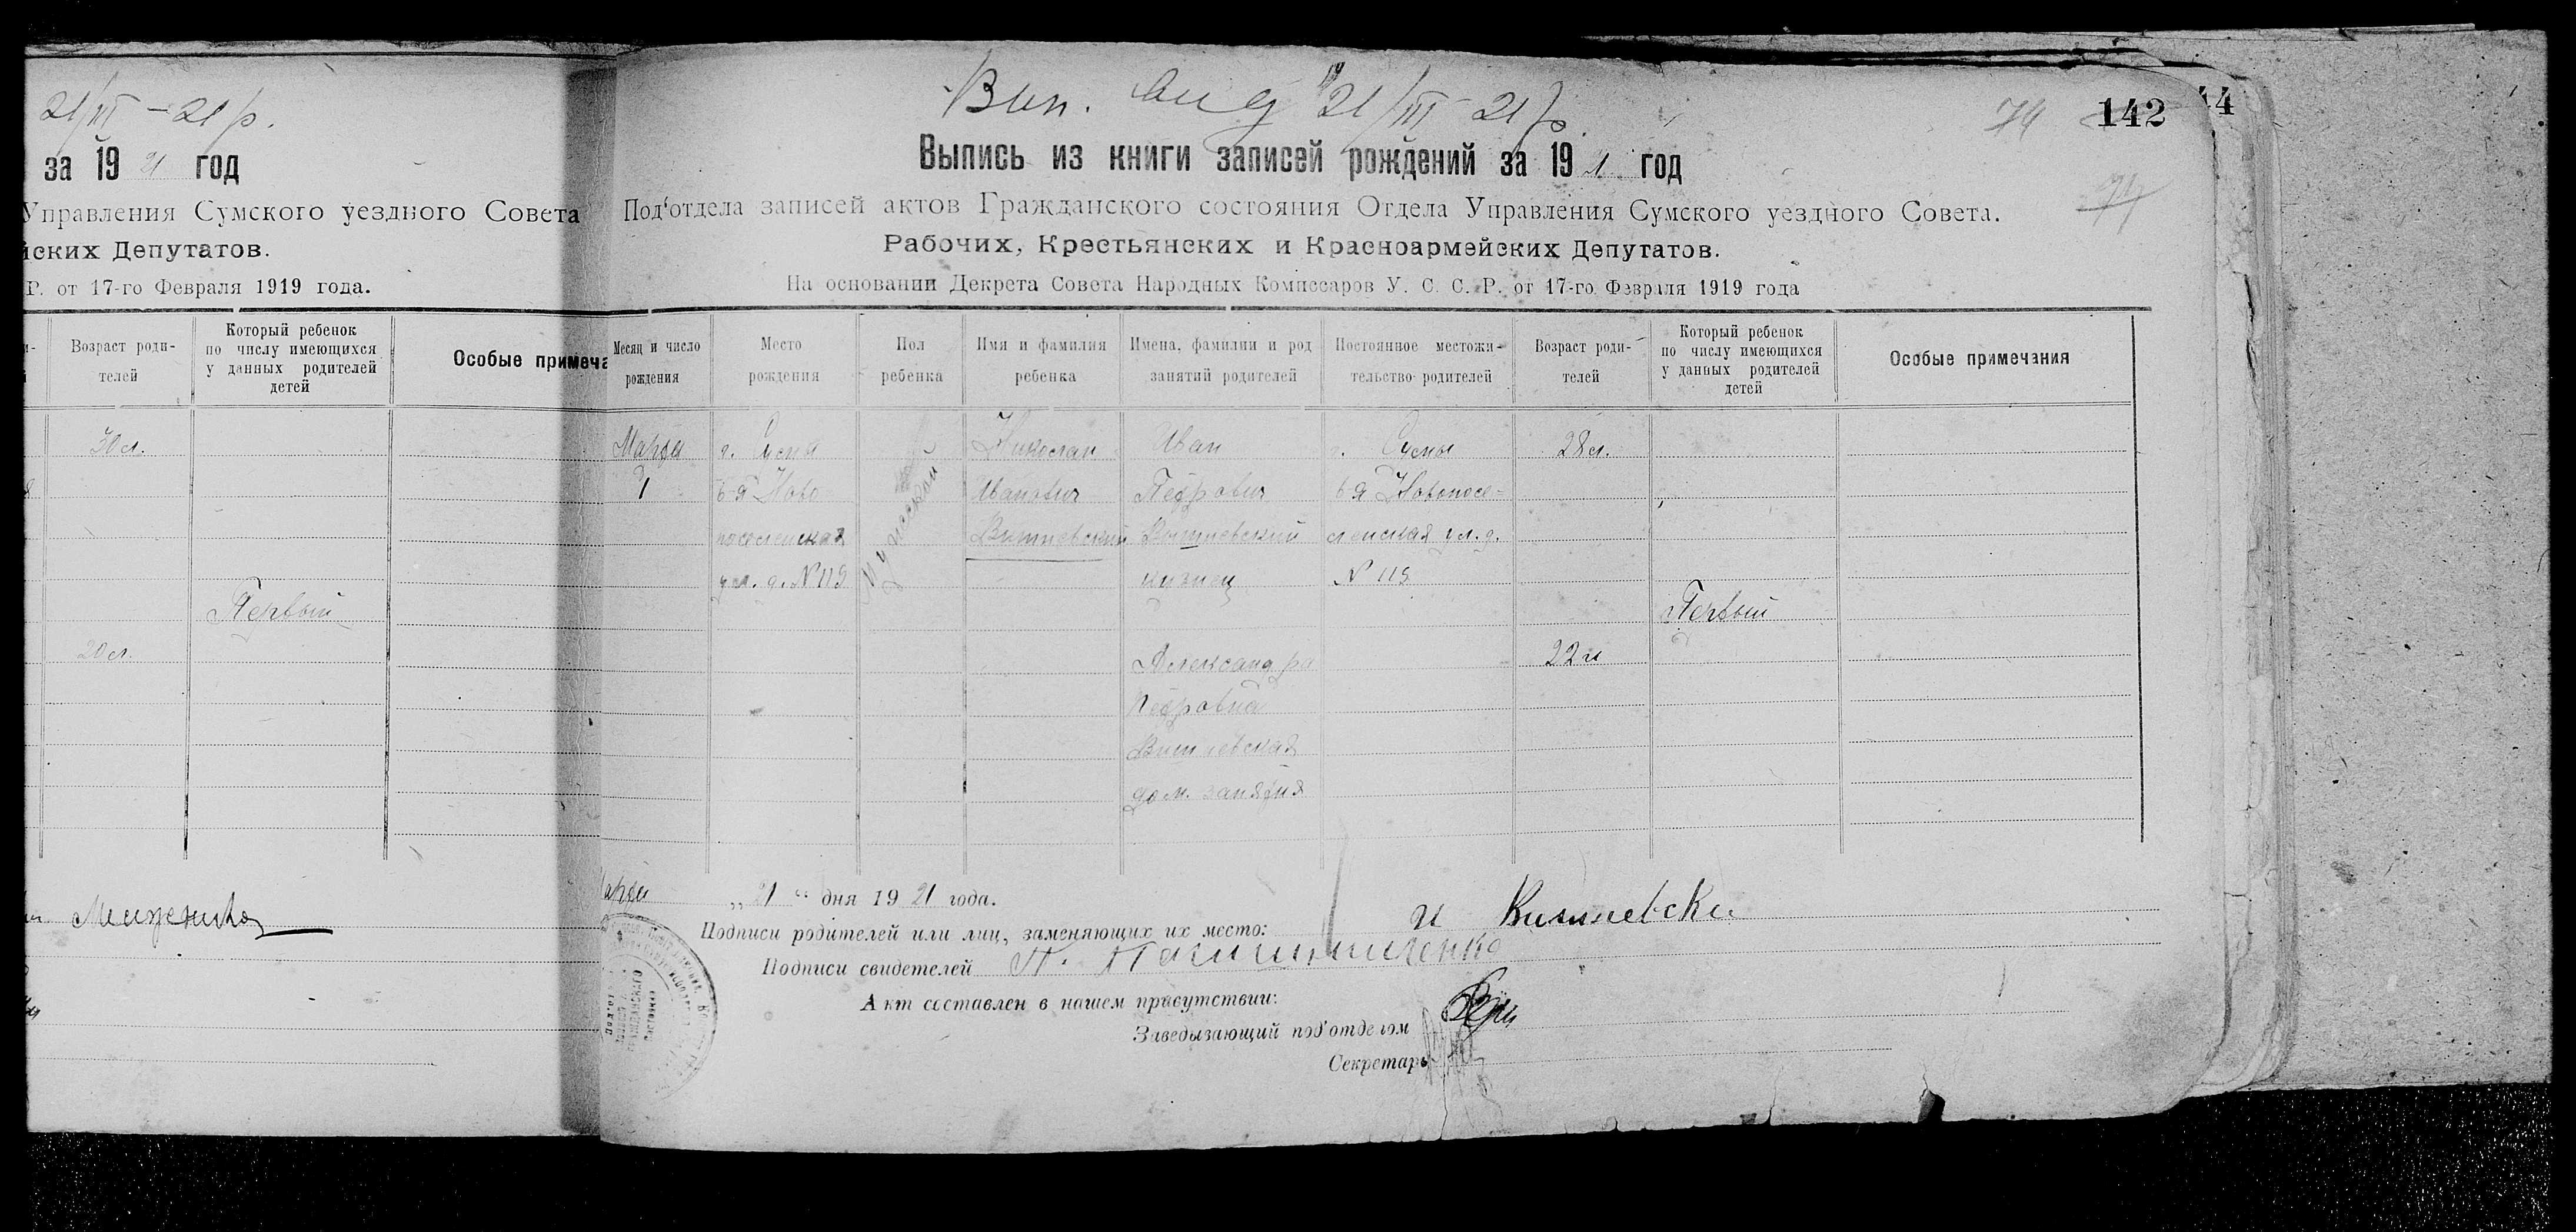 21/III – 21 р.
за 1921 год
Управления Сумского уездного Совета
йских Депутатов.
Р. от 17-го Февраля 1919 года.
Возраст роди-
телей
Который ребенок
по числу имеющихся
у данных родителей
детей
Особые примеча
30 л.
Первый
20 л.
Вип. 21/III – 21 р.
74
142
44
Выпись из книги записей рождений за 1921 год
Под‘отдела записей актов Гражданского состояния Отдела Управления Сумского уездного Совета.
Рабочих, Крестьянских и Красноармейских Депутатов.
На основании Декрета Совета Народных Комиссаров У. С. С. Р. от 17-го Февраля 1919 года
Месяц и число
рождения
Место
рождения
Пол
ребенка
Имя и фамилия
ребенка
Имена, фамилии и род
занятий родителей
Постоянное местожи-
тельство родителей
Возраст роди-
телей
Который ребенок
по числу имеющихся
у данных родителей
детей
Особые примечания
Марта
1
г. Сумы
6-я Ново
поселенская
ул. д. № 119
Мужской
Николай
Иванович
Вишневский
Иван
Петрович
Вишневский
кузнец
Александра
Петровна
Вишневская
дом. занятия
Сумы
6-я Новопосе-
ленская ул. д.
№ 119
28 л.
22 л
Первый
Марта „21“ дня 1921 года.
Подписи родителей или лиц, заменяющих их место: И Вишневски
Подписи свидетелей
Акт составлен в нашем присутствии:
Заведызающий под‘отделом
Секретарь